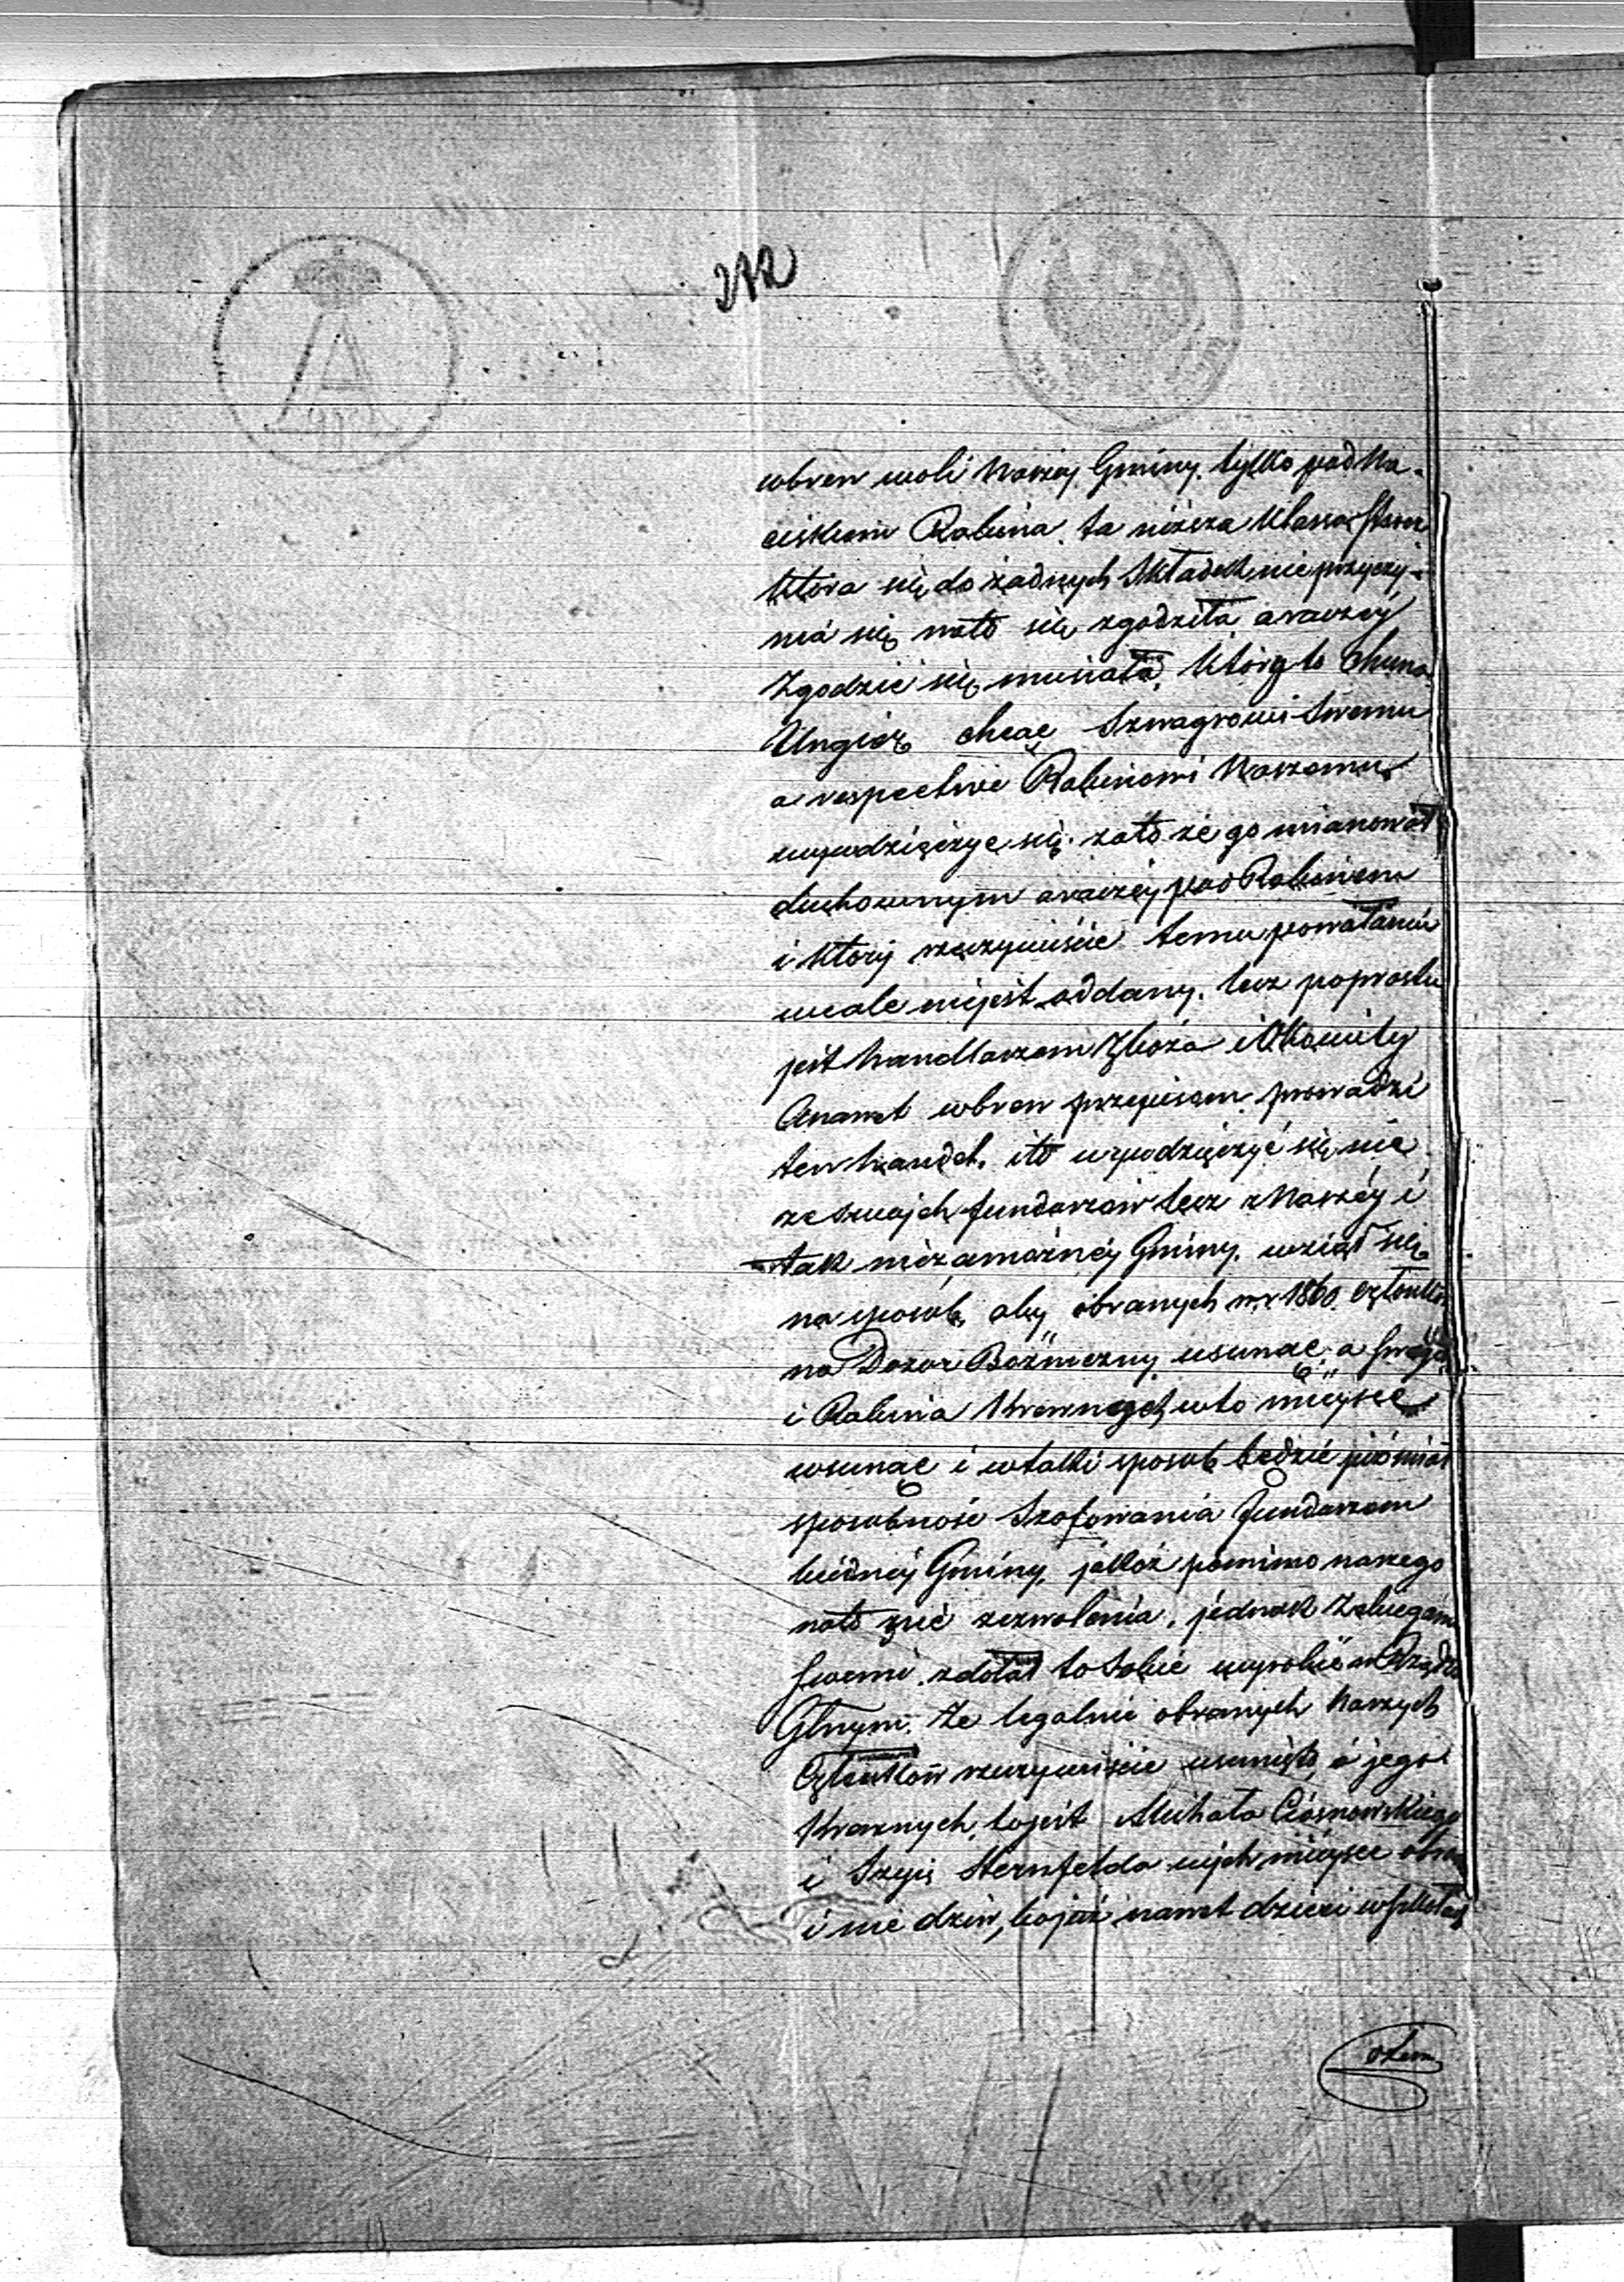 272
wbrew woli Naszej Gminy, tylko pod Na-
ciskiem Rabina, ta niższa Klassa
Która się do żadnych Składek nie przyczy-
nia się nato się zgodziła a raczéj
Zgodzić się musiała, Który to Chuna
Ungier chcąc Szwagrowi Swemu
a respective Rabinowi Naszemu
wywdzięczyć się zato że go mianował
duchownym a raczéj pod Rabinem
i Który rzeczywiście temu powołaniu
wcale niejest oddany, lecz poprostu
jest handlarzem Zboża i Okowity
Anawet wbrew przepisom prowadzi
ten handel, ito wywdzięczyć się nie
ze swojch funduszów lecz z Naszéj i
tak niezamożnéj Gminy, wziął się
na sposób, aby obranych w r 1860 członków
na Dozór Bożniczny usunąć a swojch
i Rabina Krewnych wto miejsce
wsunąć i wtakki sposób będzie już miał
sposobność Szafowania funduszem
biednéj Gminy, jakkoż pomimo naszego
nato nie zezwolenia, jednak Zabiegami
swemi zdołał to Sobie wyrobić w Rządzie
Glnym, że legalnie obranych Naszych
Członków rzeczywiście usunięto, a jego
Krewnych, tojest Michała Ciosnowskiego
i Szyję Sternfelda wich miejsce
i nie dziw, bo już nawet dzieci